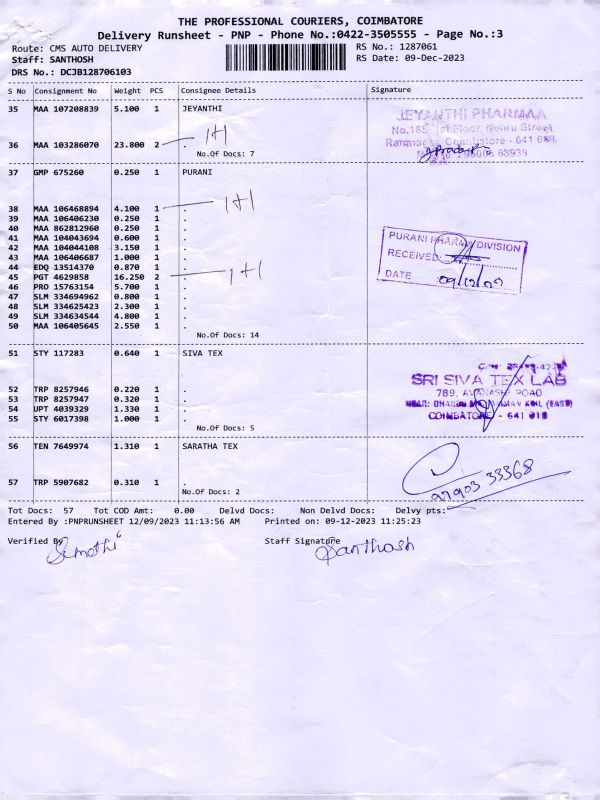 THE PROFESSIONAL COURIERS, COIMBATORE
Delivery Runsheet - PNP - Phone No.:0422-3505555 - Page No.:3
Route: CMS AUTO DELIVERY
RS No.: 1287061
Staff: SANTHOSH
RS Date: 09-Dec-2023
DRS No.: DCJB128706103
S No Consignment No Weight PCS Consignee Details Signature
35 MAA 107208839 5.100 1 JEYANTHI
JEYANTHI PHARMAA
No.185, 1st Floor, Nehru Street
Coimbatore - 641 009.
1+1
36 MAA 103286070 23.800 2 .
No.Of Docs: 7
37 GMP 675260 0.250 1 PURANI
1+1
38 MAA 106468894 4.100 1 .
39 MAA 106406230 0.250 1 .
40 MAA 862812960 0.250 1 .
41 MAA 104043694 0.600 1 .
42 MAA 104044108 3.150 1 .
43 MAA 106406687 1.000 1 .
44 EDQ 13514370 0.870 1 .
45 PGT 4629858 16.250 2 . 1+1
46 PRO 15763154 5.700 1 .
47 SLM 334694962 0.800 1 .
48 SLM 334625423 2.300 1 .
49 SLM 334634544 4.800 1 .
50 MAA 106405645 2.550 1 .
No.Of Docs: 14
PURANI PHARMA DIVISION
RECEIVED
DATE
51 STY 117283 0.640 1 SIVA TEX
SRI SIVA TEX LAB
789, AVINASHI ROAD
COIMBATORE - 641 018
52 TRP 8257946 0.220 1 .
53 TRP 8257947 0.320 1 .
54 UPT 4039329 1.330 1 .
55 STY 6017398 1.000 1 .
No.Of Docs: 5
56 TEN 7649974 1.310 1 SARATHA TEX
97903 33368
57 TRP 5907682 0.310 1 .
No.Of Docs: 2
Tot Docs: 57 Tot COD Amt: 0.00 Delvd Docs: Non Delvd Docs: Delvy pts:
Entered By :PNPRUNSHEET 12/09/2023 11:13:56 AM Printed on: 09-12-2023 11:25:23
Verified By
Staff Signature
Santhosh